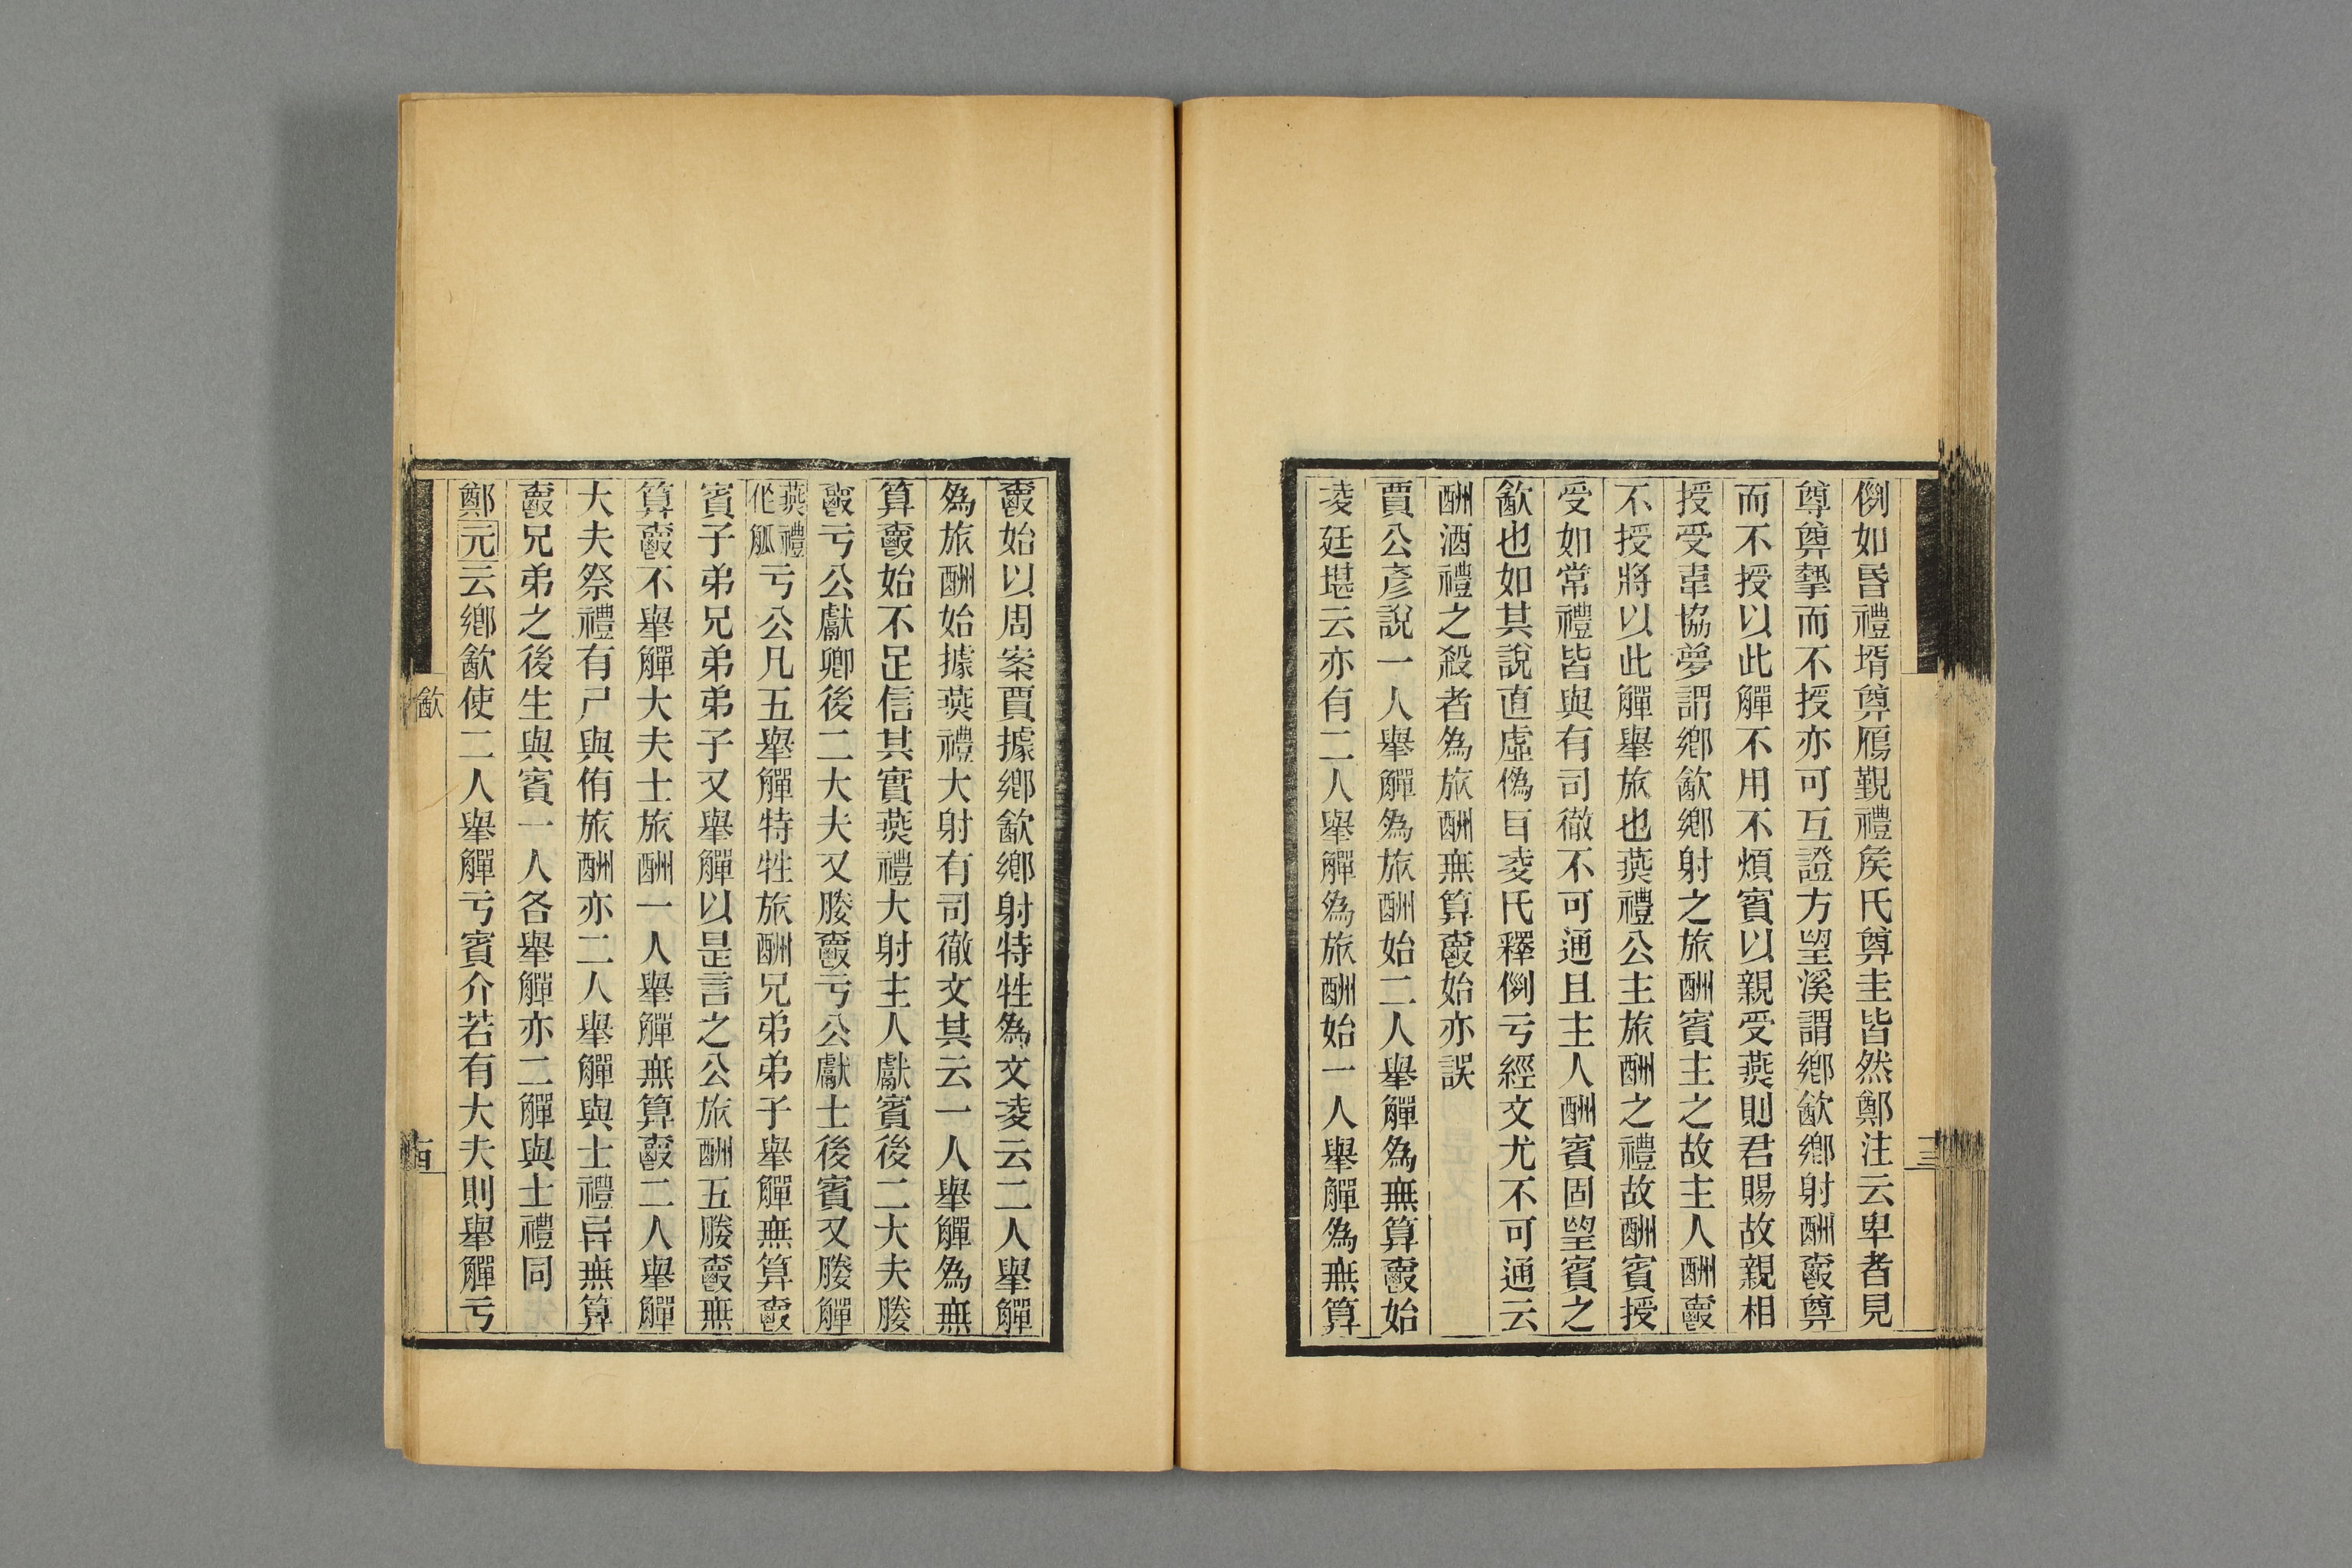 例如昏禮壻奠鴈覲禮矦氏奠圭皆然鄭注云卑者見
尊奠摯而不授亦可互證方望溪謂鄉歙鄉射酬爵奠
而不授以此觶不用不煩賓以親受燕則君賜故親相
授受韋協夢謂鄉歙鄉射之旅酬賓主之故主人酬爵
不授將以此觶舉旅也燕禮公主旅酬之禮故酬賓授
受如常禮皆與有司徹不可通且主人酬賓固望賓之
歙也如其說直虛偽㠯凌氏釋例亏經文尤不可通云
酬酒禮之殺者為旅酬無算爵始亦誤
賈公彥說一人舉觶為旅酬始二人舉觶為無算爵始
凌廷堪云亦有二人舉觶為旅酬始一人舉觶為無算
爵始以周案賈據鄉歙鄉射特牲為文凌云二人舉觶
為旅酬始據燕禮大射有司徹文其云一人舉觶為無
算爵始不足信其實燕禮大射主人獻賓後二大夫媵
爵亏公獻卿後二大夫又媵爵亏公獻士後賓又媵觶
燕禮
作觚
亏公凡五舉觶特牲旅酬兄弟弟子舉觶無算爵
賓子弟兄弟弟子又舉觶以是言之公旅酬五媵爵無
算爵不舉觶大夫士旅酬一人舉觶無算爵二人舉觶
大夫祭禮有尸與侑旅酬亦二人舉觶與士禮異無算
爵兄弟之後生與賓一人各舉觶亦二觶與士禮同
鄭元云鄉歙使二人舉觶亏賓介若有大夫則舉觶亏
歙